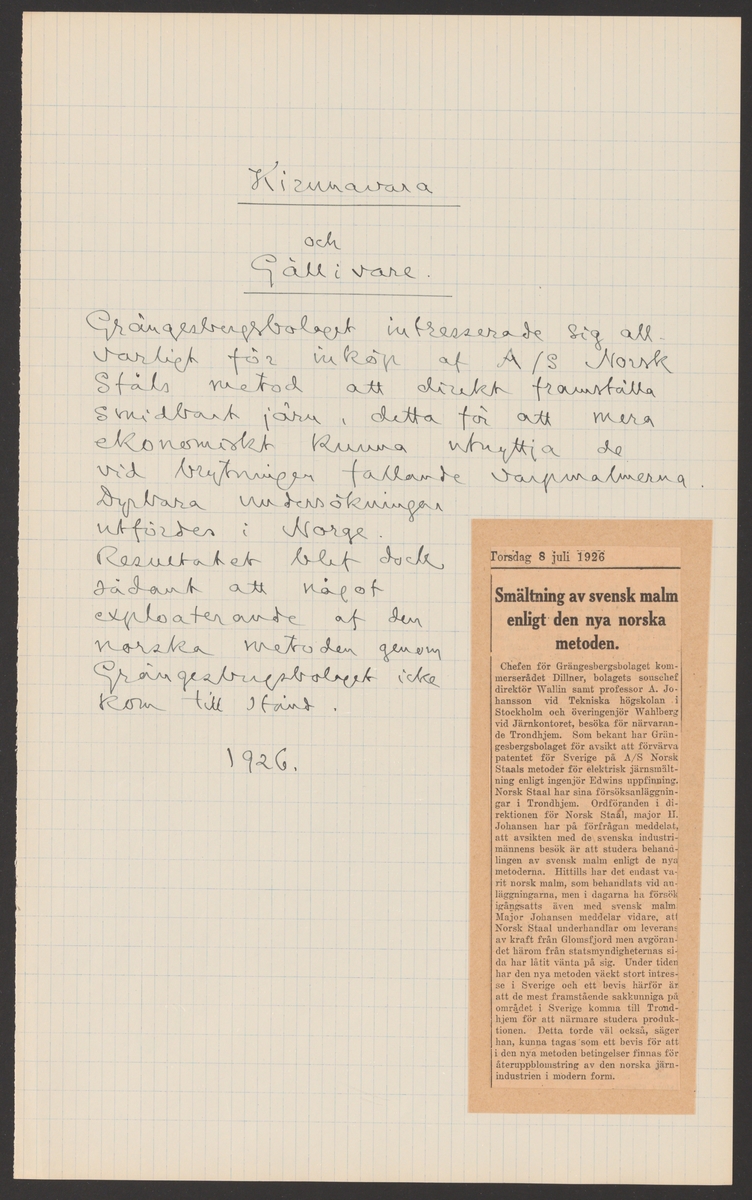 Kirunavara
och
Gällivare.
Grängesbergsbolaget intresserade sig all-
varligt för inköp af A/S Norsk
Ståls metod att direkt framställa
smidbart järn, detta för att mera
ekonomiskt kunna utnyttja de
vid brytningen fallande varpmalmerna.
Dyrbara undersökningar
utfördes i Norge.
Resultatet blef dock
sådant att något
exploaterande af den
norska metoden genom
Grängesbergsbolaget icke
kom till stånd.
1926.
Torsdag 8 juli 1926
Smältning av svensk malm
enligt den nya norska
metoden.
Chefen för Grängesbergsbolaget kom-
merserådet Dillner, bolagets souschef
direktör Wallin samt professor A. Jo-
hansson vid Tekniska högskolan i
Stockholm och överingenjör Wahlberg
vid Järnkontoret, besöka för närvaran-
de Trondhjem. Som bekant har Grän-
gesbergsbolaget för avsikt att förvärva
patentet för Sverige på A/S Norsk
Staals metoder för elektrisk järnsmält-
ning enligt ingenjör Edwins uppfinning.
Norsk Staal har sina försöksanläggnin-
gar i Trondhjem. Ordföranden i di-
rektionen för Norsk Staal, major H.
Johansen har på förfrågan meddelat,
att avsikten med de svenska industri-
männens besök är att studera behand-
lingen av svensk malm enligt de nya
metoderna. Hittills har det endast va-
rit norsk malm, som behandlats vid an-
läggningarna, men i dagarna ha försök
igångsatts även med svensk malm.
Major Johansen meddelar vidare, att
Norsk Staal underhandlar om leverans
av kraft från Glomsfjord men avgöran-
det härom från statsmyndigheternas si-
da har låtit vänta på sig. Under tiden
har den nya metoden väckt stort intres-
se i Sverige och ett bevis härför är
att de mest framstående sakkunniga på
området i Sverige komma till Trond-
hjem för att närmare studera produk-
tionen. Detta torde väl också, säger
han, kunna tagas som ett bevis för att
i den nya metoden betingelser finnas för
återuppblomstring av den norska järn-
industrien i modern form.